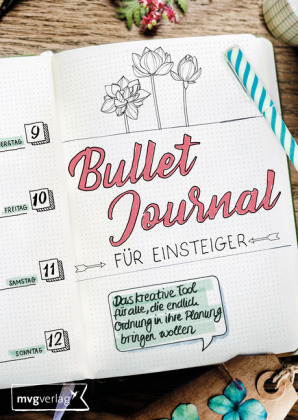 9
ERSTAG
10
FREITAG
11
SAMSTAG
12
SONNTAG
Bullet
Journal
FÜR EINSTEIGER
Das kreative Tool
für alle, die endlich
Ordnung in ihre Planung
bringen wollen
mvgverlag